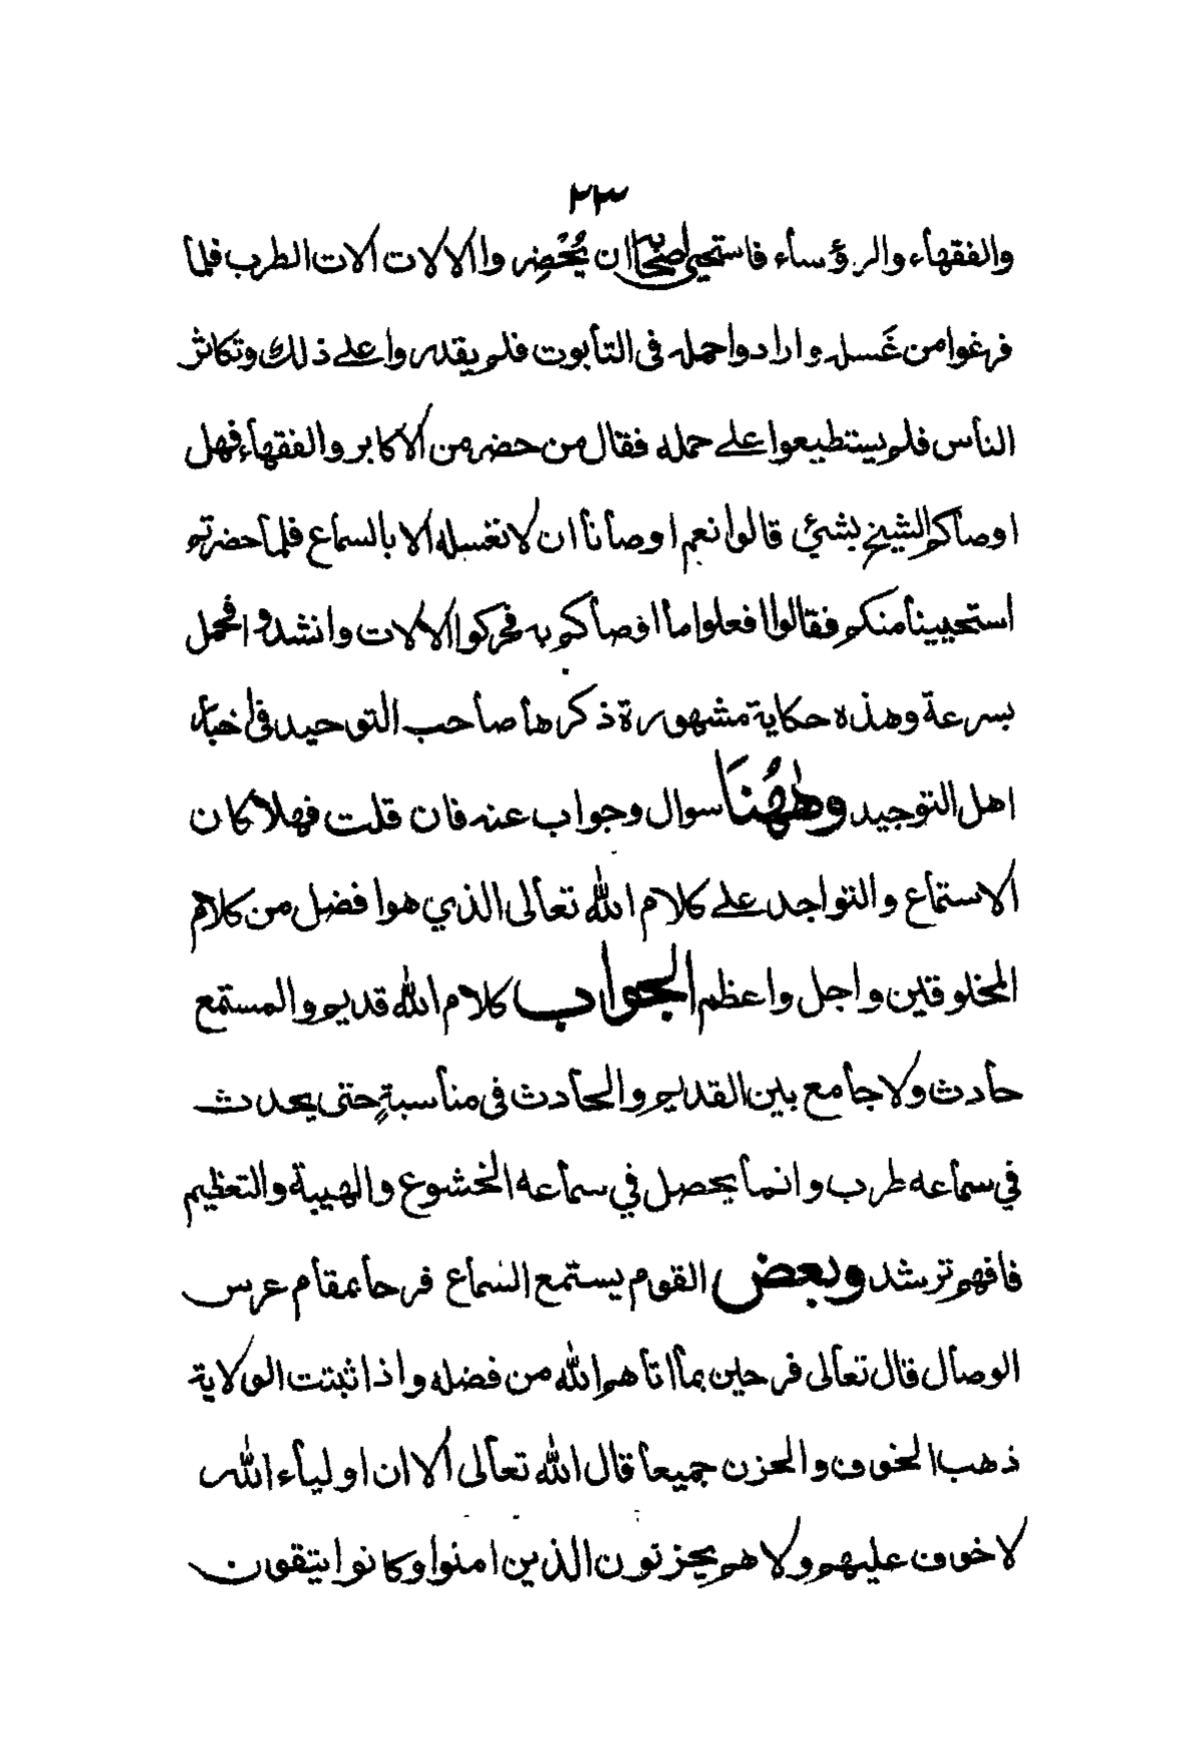 ٢٣
والفقهاء والرؤساء فاستحيى اصحابه ان يُحْضِروا الالات الات الطرب فلما
فرغوا من غَسله وارادوا حمله فى التابوت فلم يقدروا على ذلك وتكاثر
الناس فلم يستطيعوا على حمله فقال من حضر من الاكابر والفقهاء فهل
اوصاكم الشيخ بشئي قالوا نعم اوصانا ان لا نغسله الا بالسماع فلما حضرتم
استحيينا منكم فقالوا افعلوا ما اوصاكم به فحركوا الالات وانشدوا فحمل
بسرعة وهذه حكاية مشهورة ذكرها صاحب التوحيد فى اخبار
اهل التوحيد وهٰهُنَا سوال وجواب عنه فان قلت فهلا كان
الاستماع والتواجد على كلام الله تعالى الذي هو افضل من كلام
المخلوقين واجل واعظم الجواب كلام الله قديم والمستمع
حادث ولا جامع بين القديم والحادث فى مناسبةٍ حتى يحدث
في سماعه طرب وانما يحصل في سماعه الخشوع والهيبة والتعظيم
فافهم ترشد وبعض القوم يستمع السماع فرحا بمقام عرس
الوصال قال تعالى فرحين بما اتاهم الله من فضله واذا ثبتت الولاية
ذهب الخوف والحزن جميعا قال الله تعالى الا ان اولياء الله
لا خوف عليهم ولا هم يحزنون الذين امنوا وكانوا يتقون